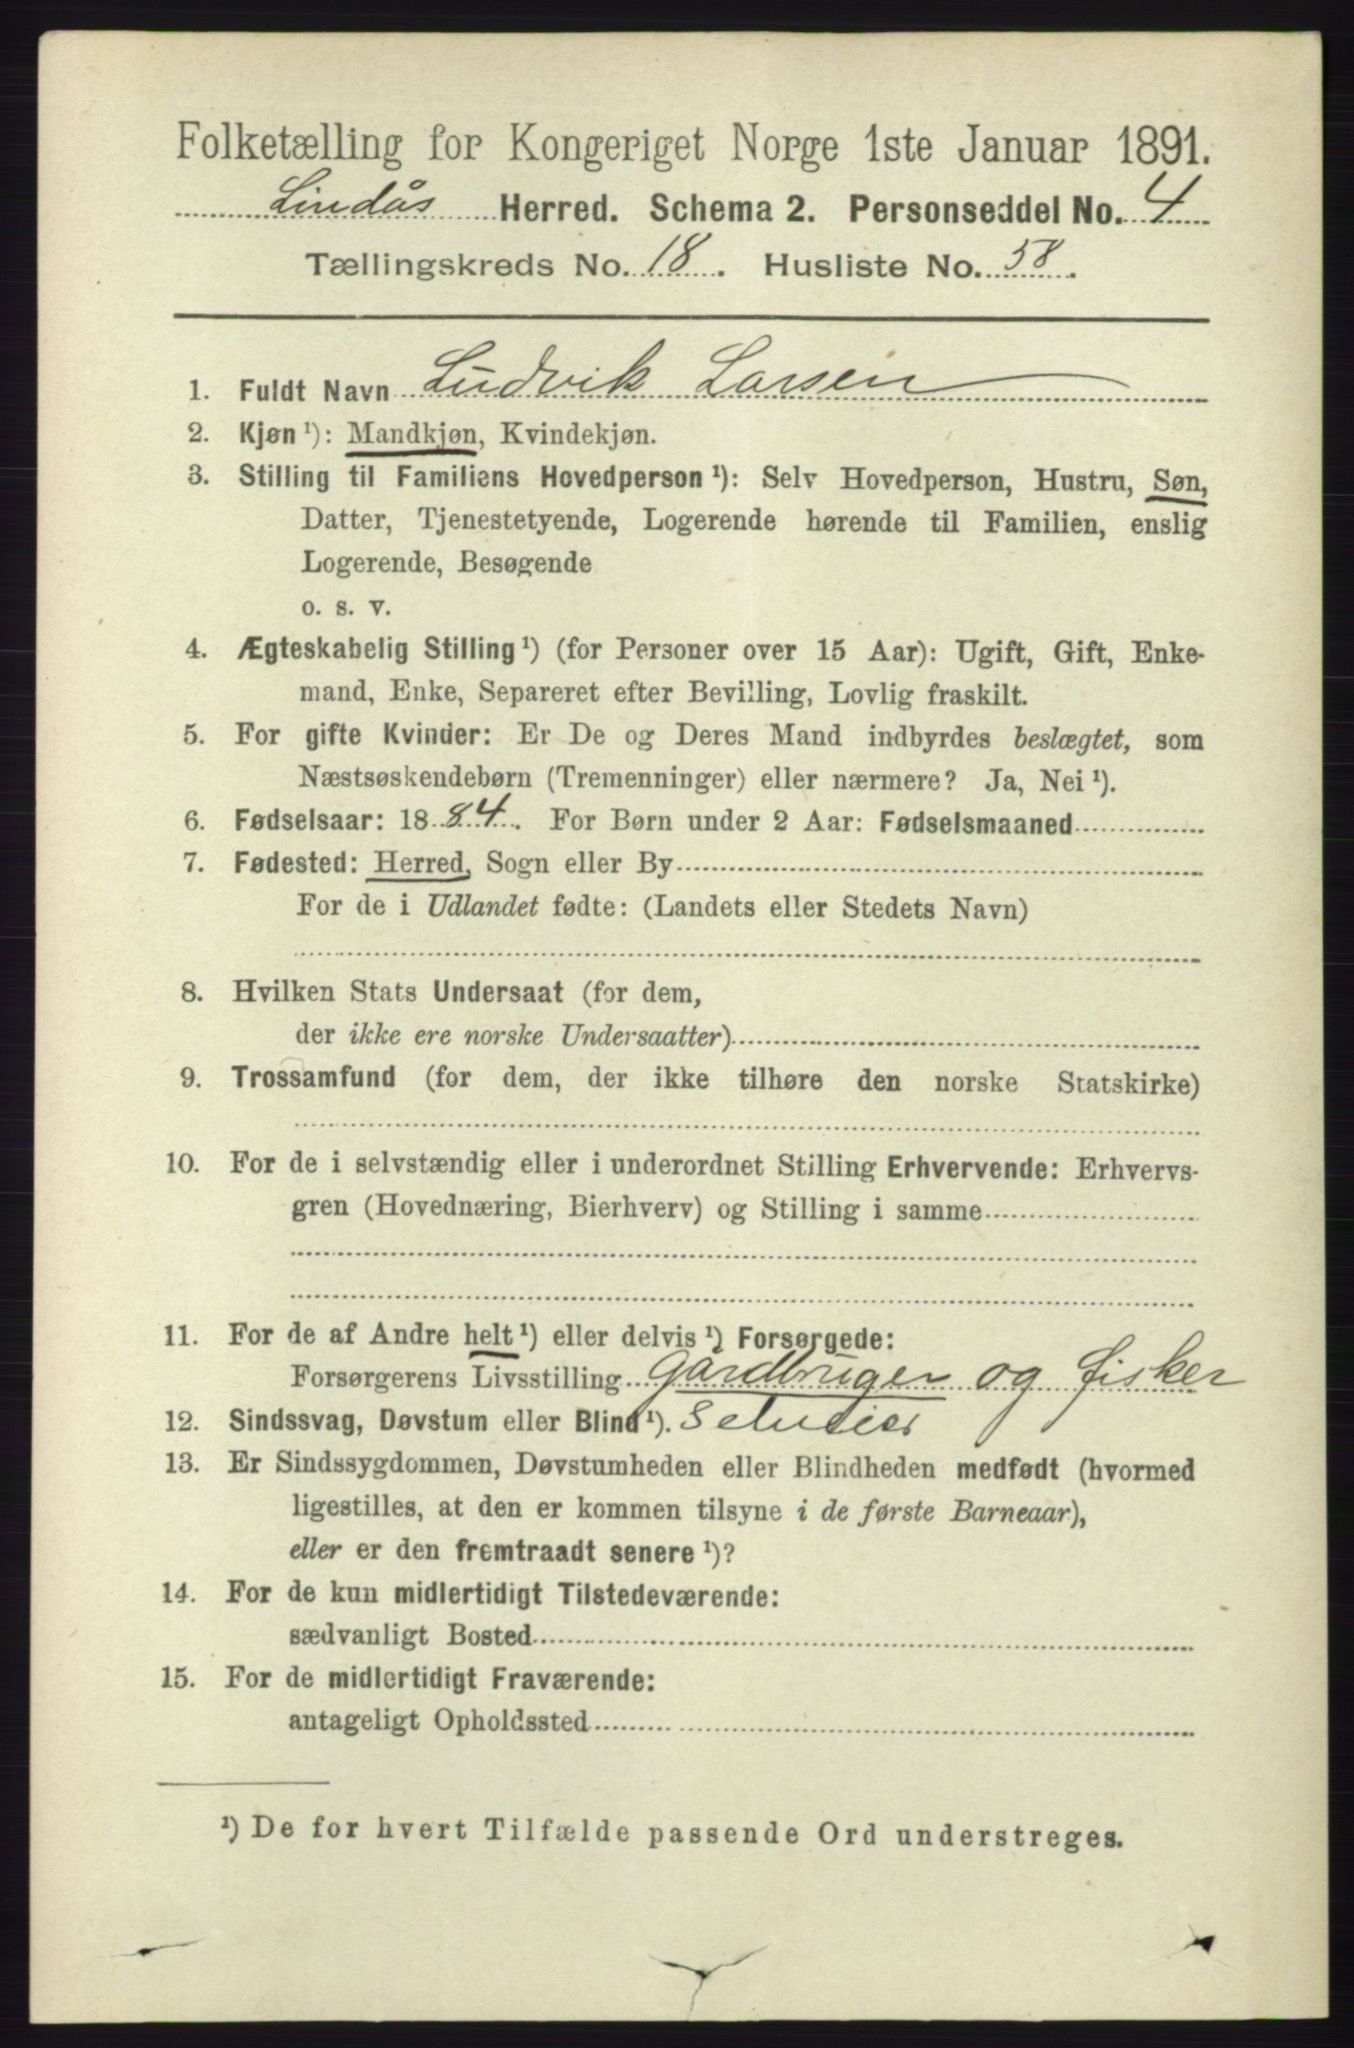 Folketælling for Kongeriget Norge 1ste Januar 1891.
Lindås Herred. Schema 2. Personseddel No. 4
Tællingskreds No. 18. Husliste No. 58.
1. Fuldt Navn Ludvik Larsen
2. Kjøn ¹): Mandkjøn, Kvindekjøn.
3. Stilling til Familiens Hovedperson ¹): Selv Hovedperson, Hustru, Søn,
Datter, Tjenestetyende, Logerende hørende til Familien, enslig
Logerende, Besøgende
o. s. v.
4. Ægteskabelig Stilling ¹) (for Personer over 15 Aar): Ugift, Gift, Enke-
mand, Enke, Separeret efter Bevilling, Lovlig fraskilt.
5. For gifte Kvinder: Er De og Deres Mand indbyrdes beslægtet, som
Næstsøskendebørn (Tremenninger) eller nærmere? Ja, Nei ¹).
6. Fødselsaar: 1884. For Børn under 2 Aar: Fødselsmaaned
7. Fødested: Herred, Sogn eller By
For de i Udlandet fødte: (Landets eller Stedets Navn)
8. Hvilken Stats Undersaat (for dem,
der ikke ere norske Undersaatter)
9. Trossamfund (for dem, der ikke tilhøre den norske Statskirke)
10. For de i selvstændig eller i underordnet Stilling Erhvervende: Erhvervs-
gren (Hovednæring, Bierhverv) og Stilling i samme
11. For de af Andre helt ¹) eller delvis ¹) Forsørgede:
Forsørgerens Livsstilling Gardbruger og fisker
12. Sindssvag, Døvstum eller Blind ¹). Selveier
13. Er Sindssygdommen, Døvstumheden eller Blindheden medfødt (hvormed
ligestilles, at den er kommen tilsyne i de første Barneaar),
eller er den fremtraadt senere ¹)?
14. For de kun midlertidigt Tilstedeværende:
sædvanligt Bosted
15. For de midlertidigt Fraværende:
antageligt Opholdssted
¹) De for hvert Tilfælde passende Ord understreges.